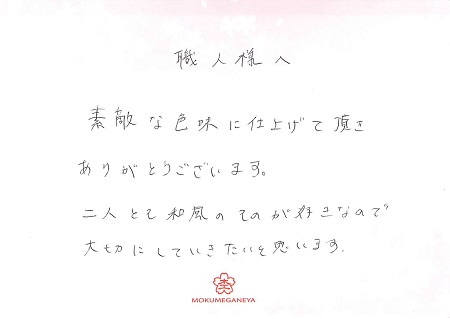 職人様へ
素敵な色味に仕上げて頂き
ありがとうございます。
二人とも和風のものが好きなので
大切にしていきたいと思います.
MOKUMEGANEYA